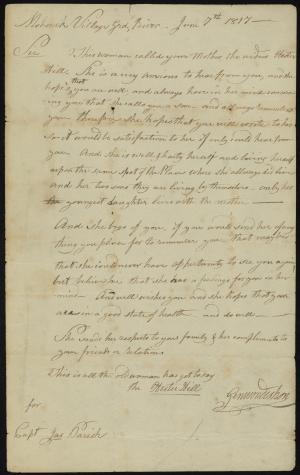 Mohawk Village Grd River - June 7th 1817 -
Sir
This woman called your Mother the widow Hester
Hill. She is very anxious to hear from you, and she
hopes that you are well and always have in her mind concern
ing you that she calls you a son - and always remembers
you therefore she hopes that you will wrote to her
So it would be satisfaction to her if only could hear from
you And she is well & harty herself and living herself
upon the same spot of the Place where she always did live
and her two sons they are living by themselves - only her
youngest Daughter lives with the mother -
And she begs of you, if you would send her any
thing you please for to remember you that may be
that she could never have oppertunity to see you again
but believe her that she has a feelings for you in her
mind And well wishes you and she hopes that you
are in a good state of health and do well -
She sends her respects to your family & her compliments to
your friends or relations
This is all the old woman has got to say
the Hester Hill
for
Capt Jas Parish